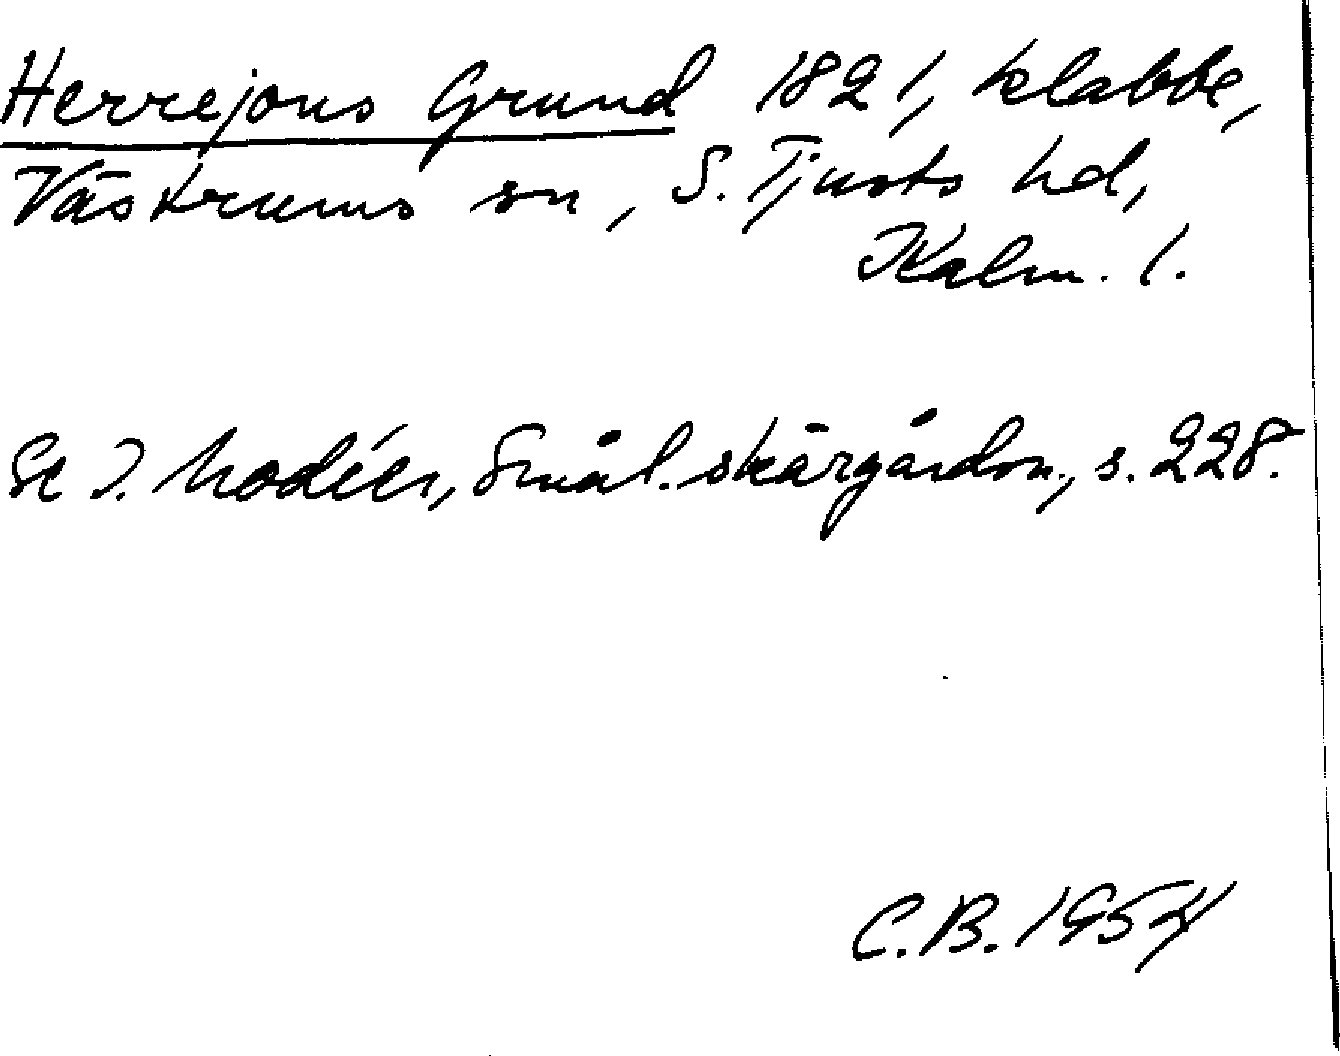 Herrejons Grund 1821, klabbe,
Västrums sn, S. Tjusts hd,
Kalm. l.
Se I. Modéer, Smål. skärgårdsn., s. 228.
C.B. 1954